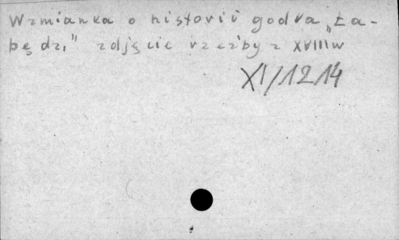 Wzmianka o historii godła „Ła-
będź,” zdjęcie rzeźby z XVIII w
XI/1214